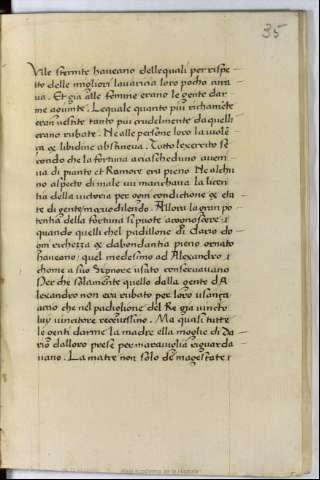 35
Vile spernite haveano delle quali per rispe-
to delle migliori lavaricia loro pocho cura
va. Et gia alle femine erano le gente dar
me agiunte. Le quale quanto piu richamẽte
eran vestite tanto piu crudelmente da quelli
erano rubate. Ne alle persone loro la violẽ
za & libidine abstineva. Tutto lexercito sẽ
condo che la fortuna a ciascheduno avem
va di pianto et Rumore era pieno. Ne alchu
no aspecto di male vi manchava la licen
tia della victoria per ogni condictione & eta
te di gente
. Allora la gran po
tentia della fortuna si puote a cognoscere
quando quelli chel padillone di Dario do
gni richezza & dabondantia pieno ornato
haveano quel medesimo ad Alexandro
chome a suo Signore usato conservavano
Per che solamente quello dalla gente dA
lexandro non era rubato per loro usança
acio che nel paghione del Re gia vincto
luy vincitore recevessino. Ma quasi tutte
le genti darme la madre ella moglie di Da
rio dalloro prese per maraviglia risguarda
vano. La matre non solo de magestate
Real Academia de la Historia